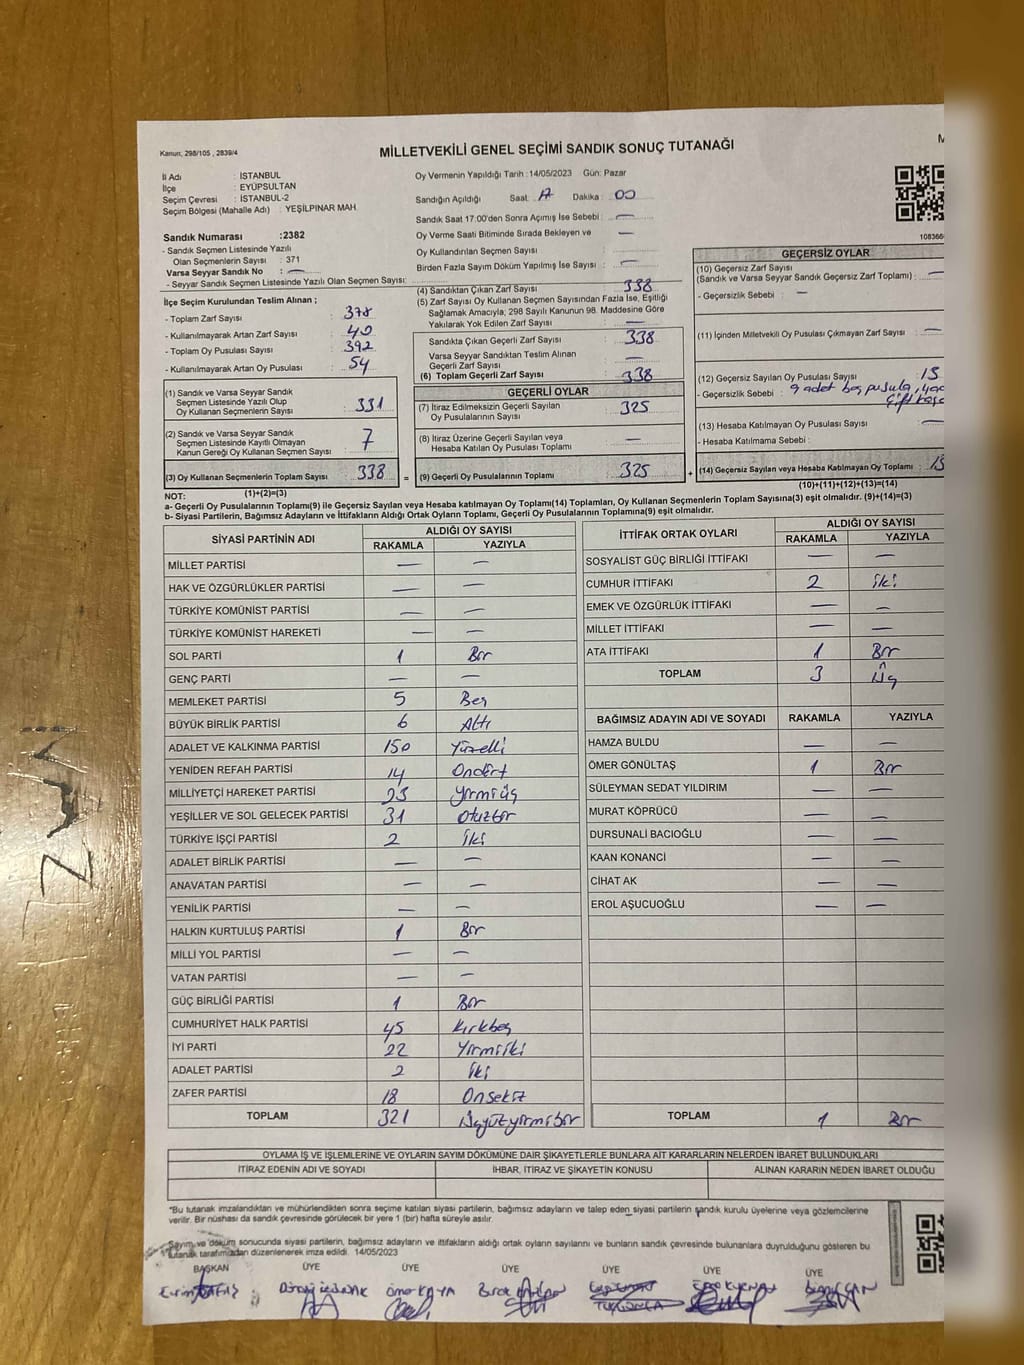 Kanun, 298/105 , 2839/4
MİLLETVEKİLİ GENEL SEÇİMİ SANDIK SONUÇ TUTANAĞI
İl Adı : İSTANBUL
İlçe : EYÜPSULTAN
Seçim Çevresi : İSTANBUL-2
Seçim Bölgesi (Mahalle Adı) : YEŞİLPINAR MAH.
Sandık Numarası :2382
- Sandık Seçmen Listesinde Yazılı
Olan Seçmenlerin Sayısı : 371
Varsa Seyyar Sandık No : —
- Seyyar Sandık Seçmen Listesinde Yazılı Olan Seçmen Sayısı:
İlçe Seçim Kurulundan Teslim Alınan ;
- Toplam Zarf Sayısı : 378
- Kullanılmayarak Artan Zarf Sayısı : 40
- Toplam Oy Pusulası Sayısı : 392
- Kullanılmayarak Artan Oy Pusulası : 54
(1) Sandık ve Varsa Seyyar Sandık
Seçmen Listesinde Yazılı Olup
Oy Kullanan Seçmenlerin Sayısı : 331
(2) Sandık ve Varsa Seyyar Sandık
Seçmen Listesinde Kayıtlı Olmayan
Kanun Gereği Oy Kullanan Seçmen Sayısı : 7
(3) Oy Kullanan Seçmenlerin Toplam Sayısı : 338
(1)+(2)=(3)
Oy Vermenin Yapıldığı Tarih :14/05/2023 Gün: Pazar
Sandığın Açıldığı Saat: 17 Dakika : 00
Sandık Saat 17:00'den Sonra Açımış İse Sebebi : —
Oy Verme Saati Bitiminde Sırada Bekleyen ve —
Oy Kullandırılan Seçmen Sayısı :
Birden Fazla Sayım Döküm Yapılmış İse Sayısı : —
(4) Sandıktan Çıkan Zarf Sayısı : 338
(5) Zarf Sayısı Oy Kullanan Seçmen Sayısından Fazla İse, Eşitliği
Sağlamak Amacıyla; 298 Sayılı Kanunun 98. Maddesine Göre
Yakılarak Yok Edilen Zarf Sayısı : —
Sandıkta Çıkan Geçerli Zarf Sayısı : 338
Varsa Seyyar Sandıktan Teslim Alınan
Geçerli Zarf Sayısı : —
(6) Toplam Geçerli Zarf Sayısı : 338
GEÇERLİ OYLAR
(7) İtiraz Edilmeksizin Geçerli Sayılan
Oy Pusulalarının Sayısı : 325
(8) İtiraz Üzerine Geçerli Sayılan veya
Hesaba Katılan Oy Pusulası Toplamı : —
(9) Geçerli Oy Pusulalarının Toplamı : 325
GEÇERSİZ OYLAR
(10) Geçersiz Zarf Sayısı
(Sandık ve Varsa Seyyar Sandık Geçersiz Zarf Toplamı) : —
- Geçersizlik Sebebi : —
(11) İçinden Milletvekili Oy Pusulası Çıkmayan Zarf Sayısı : —
(12) Geçersiz Sayılan Oy Pusulası Sayısı : 13
- Geçersizlik Sebebi : 9 adet boş pusula,
(13) Hesaba Katılmayan Oy Pusulası Sayısı : —
- Hesaba Katılmama Sebebi :
(14) Geçersiz Sayılan veya Hesaba Katılmayan Oy Toplamı : 13
(10)+(11)+(12)+(13)=(14)
NOT:
a- Geçerli Oy Pusulalarının Toplamı(9) ile Geçersiz Sayılan veya Hesaba katılmayan Oy Toplamı(14) Toplamları, Oy Kullanan Seçmenlerin Toplam Sayısına(3) eşit olmalıdır. (9)+(14)=(3)
b- Siyasi Partilerin, Bağımsız Adayların ve İttifakların Aldığı Ortak Oyların Toplamı, Geçerli Oy Pusulalarının Toplamına(9) eşit olmalıdır.
SİYASİ PARTİNİN ADI ALDIĞI OY SAYISI
RAKAMLA YAZIYLA
MİLLET PARTİSİ — —
HAK VE ÖZGÜRLÜKLER PARTİSİ — —
TÜRKİYE KOMÜNİST PARTİSİ — —
TÜRKİYE KOMÜNİST HAREKETİ — —
SOL PARTİ 1 Bir
GENÇ PARTİ — —
MEMLEKET PARTİSİ 5 Beş
BÜYÜK BİRLİK PARTİSİ 6 Altı
ADALET VE KALKINMA PARTİSİ 150 Yüzelli
YENİDEN REFAH PARTİSİ 14 Ondört
MİLLİYETÇİ HAREKET PARTİSİ 23 Yirmiüç
YEŞİLLER VE SOL GELECEK PARTİSİ 31 Otuzbir
TÜRKİYE İŞÇİ PARTİSİ 2 İki
ADALET BİRLİK PARTİSİ — —
ANAVATAN PARTİSİ — —
YENİLİK PARTİSİ — —
HALKIN KURTULUŞ PARTİSİ 1 Bir
MİLLİ YOL PARTİSİ — —
VATAN PARTİSİ — —
GÜÇ BİRLİĞİ PARTİSİ 1 Bir
CUMHURİYET HALK PARTİSİ 45 Kırkbeş
İYİ PARTİ 22 Yirmiiki
ADALET PARTİSİ 2 İki
ZAFER PARTİSİ 18 Onsekiz
TOPLAM 321 Üçyüzyirmibir
İTTİFAK ORTAK OYLARI ALDIĞI OY SAYISI
RAKAMLA YAZIYLA
SOSYALİST GÜÇ BİRLİĞİ İTTİFAKI — —
CUMHUR İTTİFAKI 2 iki
EMEK VE ÖZGÜRLÜK İTTİFAKI — —
MİLLET İTTİFAKI — —
ATA İTTİFAKI 1 Bir
TOPLAM 3 Üç
BAĞIMSIZ ADAYIN ADI VE SOYADI RAKAMLA YAZIYLA
HAMZA BULDU — —
ÖMER GÖNÜLTAŞ 1 Bir
SÜLEYMAN SEDAT YILDIRIM — —
MURAT KÖPRÜCÜ — —
DURSUNALİ BACIOĞLU — —
KAAN KONANCİ — —
CİHAT AK — —
EROL AŞUCUOĞLU — —
TOPLAM 1 Bir
OYLAMA İŞ VE İŞLEMLERİNE VE OYLARIN SAYIM DÖKÜMÜNE DAİR ŞİKAYETLERLE BUNLARA AİT KARARLARIN NELERDEN İBARET BULUNDUKLARI
İTİRAZ EDENİN ADI VE SOYADI İHBAR, İTİRAZ VE ŞİKAYETİN KONUSU ALINAN KARARIN NEDEN İBARET OLDUĞU
"Bu tutanak imzalandıktan ve mühürlendikten sonra seçime katılan siyasi partilerin, bağımsız adayların ve talep eden siyasi partilerin sandık kurulu üyelerine veya gözlemcilerine
verilir. Bir nüshası da sandık çevresinde görülecek bir yere 1 (bir) hafta süreyle asılır.
Sayım ve döküm sonucunda siyasi partilerin, bağımsız adayların ve ittifakların aldığı ortak oyların sayılarını ve bunların sandık çevresinde bulunanlara duyrulduğunu gösteren bu
tutanak tarafımızdan düzenlenerek imza edildi. 14/05/2023
BAŞKAN ÜYE ÜYE ÜYE ÜYE ÜYE ÜYE